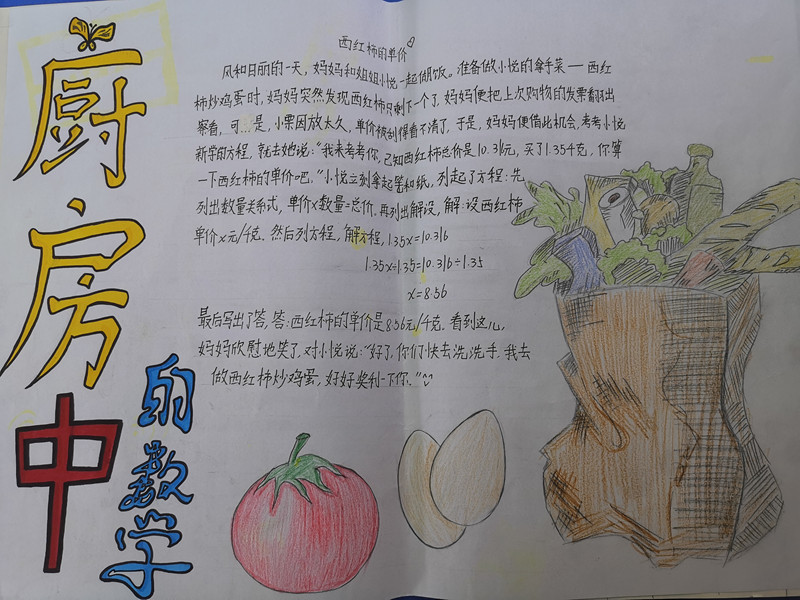 厨房中的数学
西红柿的单价
风和日丽的一天，妈妈和姐姐小悦一起做饭。准备做小悦的拿手菜—西红
柿炒鸡蛋时，妈妈突然发现西红柿只剩下一个了，妈妈便把上次购物的发票翻出
察看，可...是，小票因放太久，单价模糊得看不清了，于是，妈妈便借此机会，考考小悦
新学的方程，就去她说：“我来考考你，已知西红柿总价是10.316元，买了1.35千克，你算
一下西红柿的单价吧。”小悦立刻拿起笔和纸，列起了方程：先
列出数量关系式，单价×数量=总价，再列出解设，解：设西红柿
单价x元/千克。然后列方程，解方程，1.35x=10.316
1.35x÷1.35=10.316÷1.35
x=8.56
最后写出了答，答：西红柿的单价是8.56元/千克。看到这儿，
妈妈欣慰地笑了，对小悦说：“好了，你们快去洗洗手，我去
做西红柿炒鸡蛋，好好奖利一下你。”